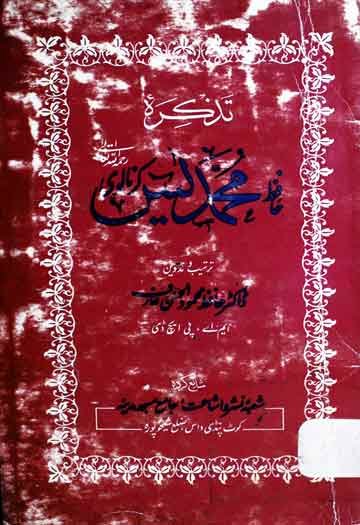 تذکرہ
حافظ محمد یٰسین کرنالوی رحمۃ اللہ علیہ
ترتیب و تدوین
ڈاکٹر حافظ محمود الحسن عارف
ایم اے، پی ایچ ڈی
شائع کردہ
شعبہ نشر و اشاعت جامع مسجد مدینہ
کوٹ پنڈی داس ضلع شیخوپورہ